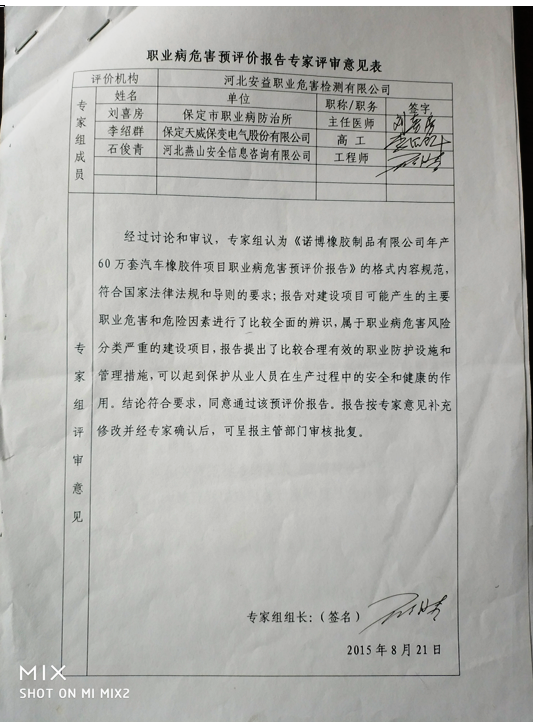 职业病危害预评价报告专家评审意见表
评价机构 河北安益职业危害检测有限公司
专家组成员 姓名 单位 职称/职务 签字
刘喜房 保定市职业病防治所 主任医师 刘喜房
李绍群 保定天威保变电气股份有限公司 高工
石俊青 河北燕山安全信息咨询有限公司 工程师 石俊青
专家组评审意见
经过讨论和审议，专家组认为《诺博橡胶制品有限公司年产
60万套汽车橡胶件项目职业病危害预评价报告》的格式内容规范，
符合国家法律法规和导则的要求；报告对建设项目可能产生的主要
职业危害和危险因素进行了比较全面的辨识，属于职业病危害风险
分类严重的建设项目，报告提出了比较合理有效的职业防护设施和
管理措施，可以起到保护从业人员在生产过程中的安全和健康的作
用。结论符合要求，同意通过该预评价报告。报告按专家意见补充
修改并经专家确认后，可呈报主管部门审核批复。
专家组组长：（签名） 石俊青
2015年8月21日
MIX
SHOT ON MI MIX2